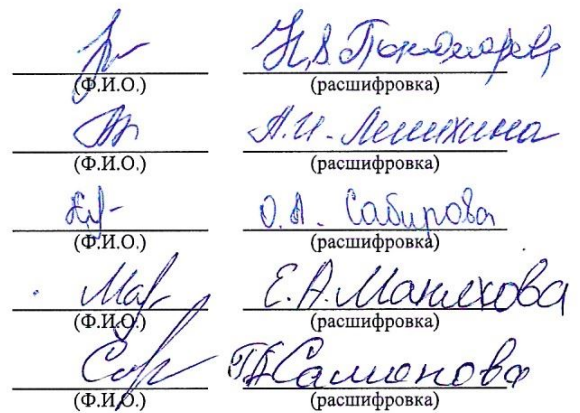 Н.В. Пономарева
(Ф.И.О.) (расшифровка)
А.И. Лешихина
(Ф.И.О.) (расшифровка)
О.А. Сабирова
(Ф.И.О.) (расшифровка)
Е.А. Манихова
(Ф.И.О.) (расшифровка)
Самонова
(Ф.И.О.) (расшифровка)